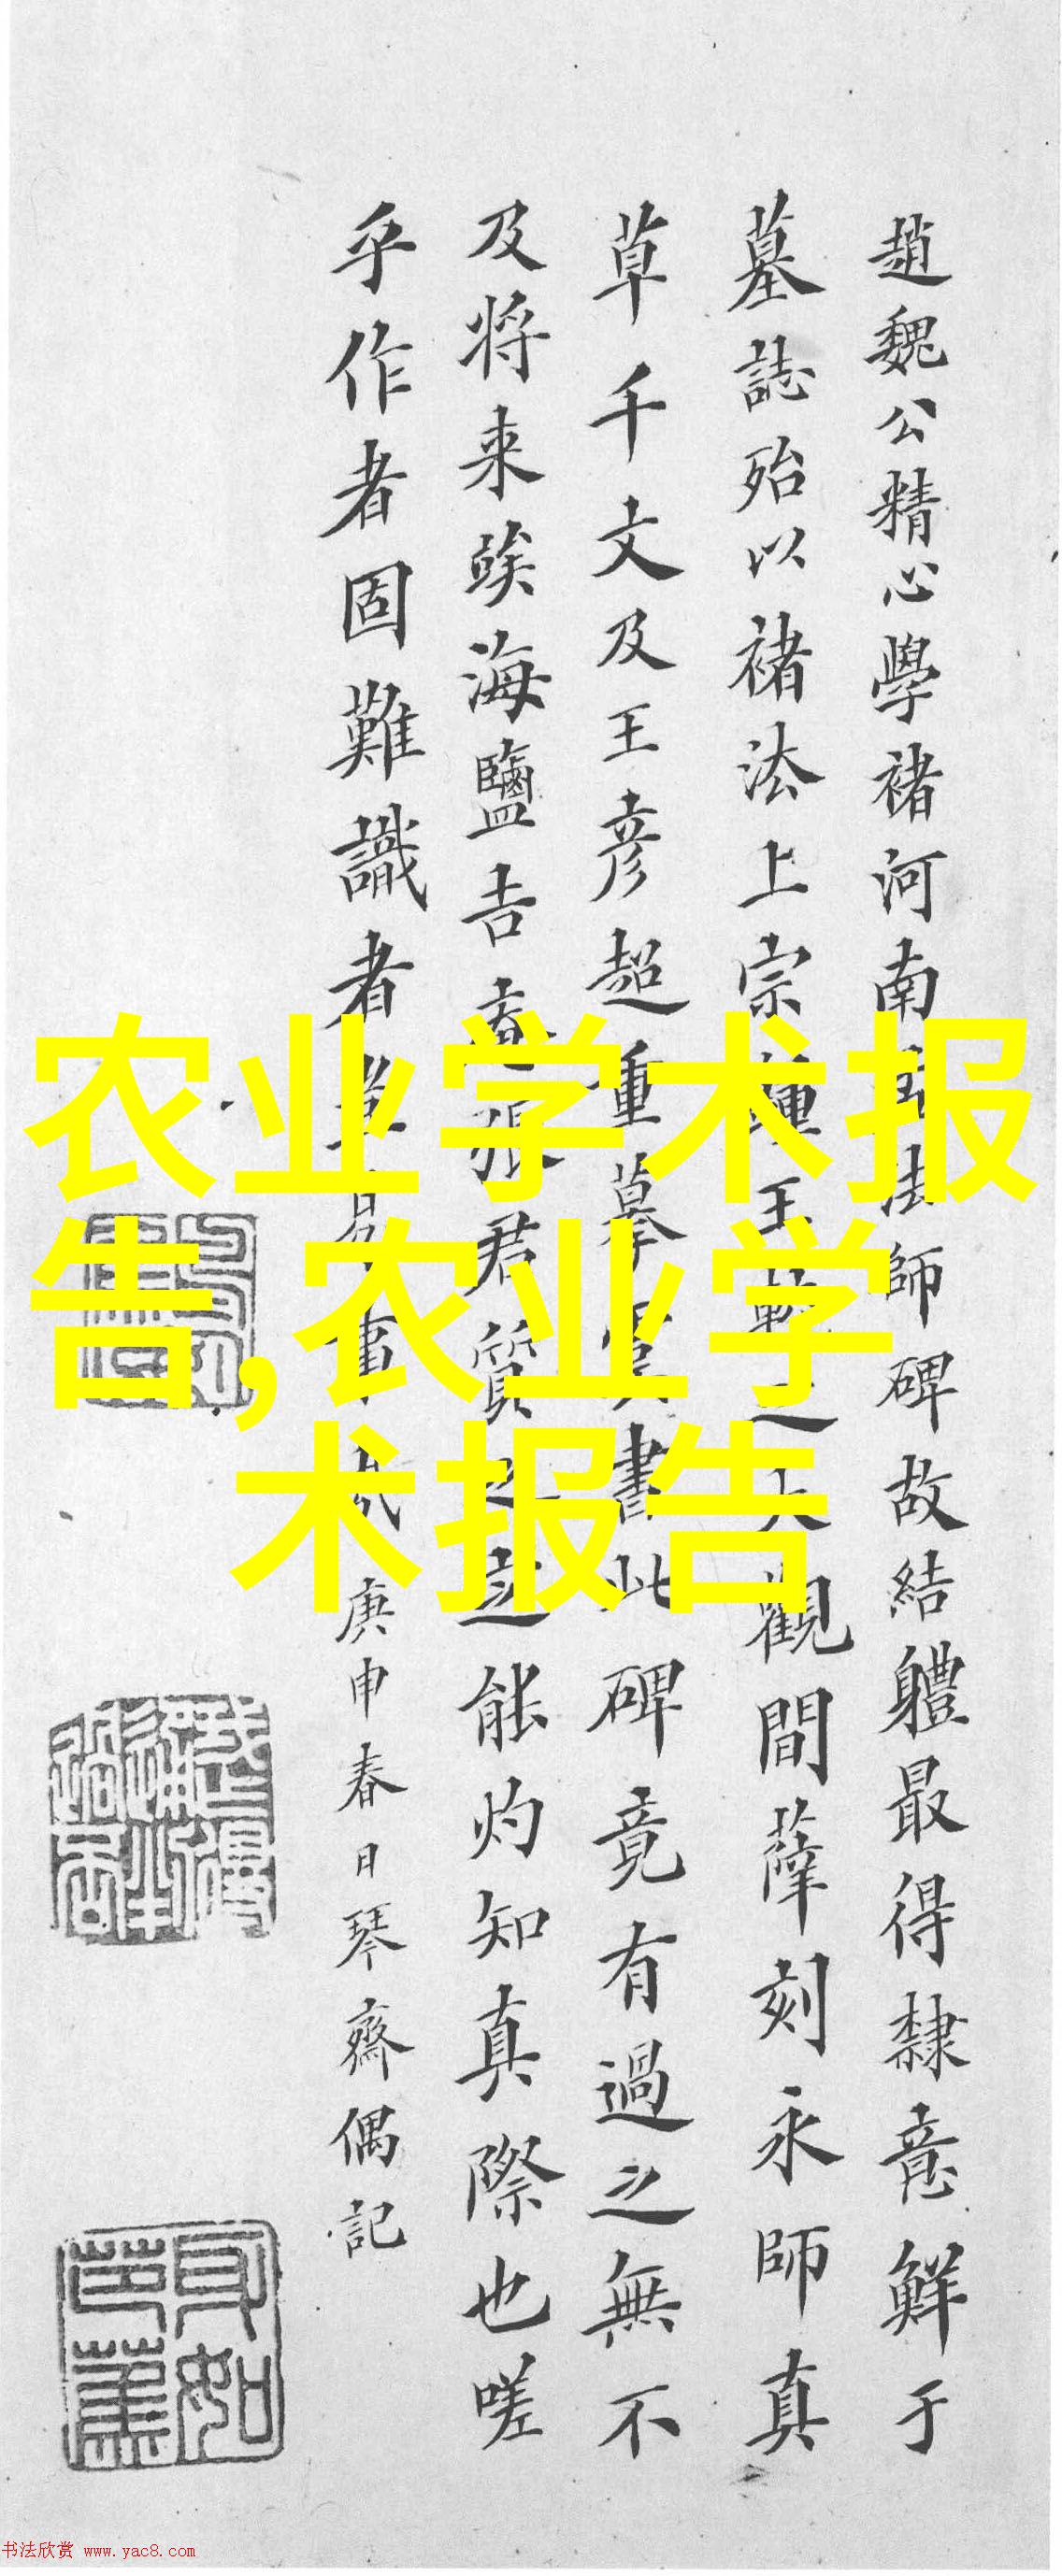 趙魏公精心學褚河南
師碑故結軆最得隸意鮮于
墓誌殆以褚法上宗
之大觀間薛刻永師真
草千文及王彦超重摹
書此碑竟有過之無不
及将来
海鹽吉
張君質
能灼知真際也嗟
乎作者固難識者
庚申春日琴齋偶記
农业学术报
告,农业学
术报告
书法欣赏 www.yac8.com